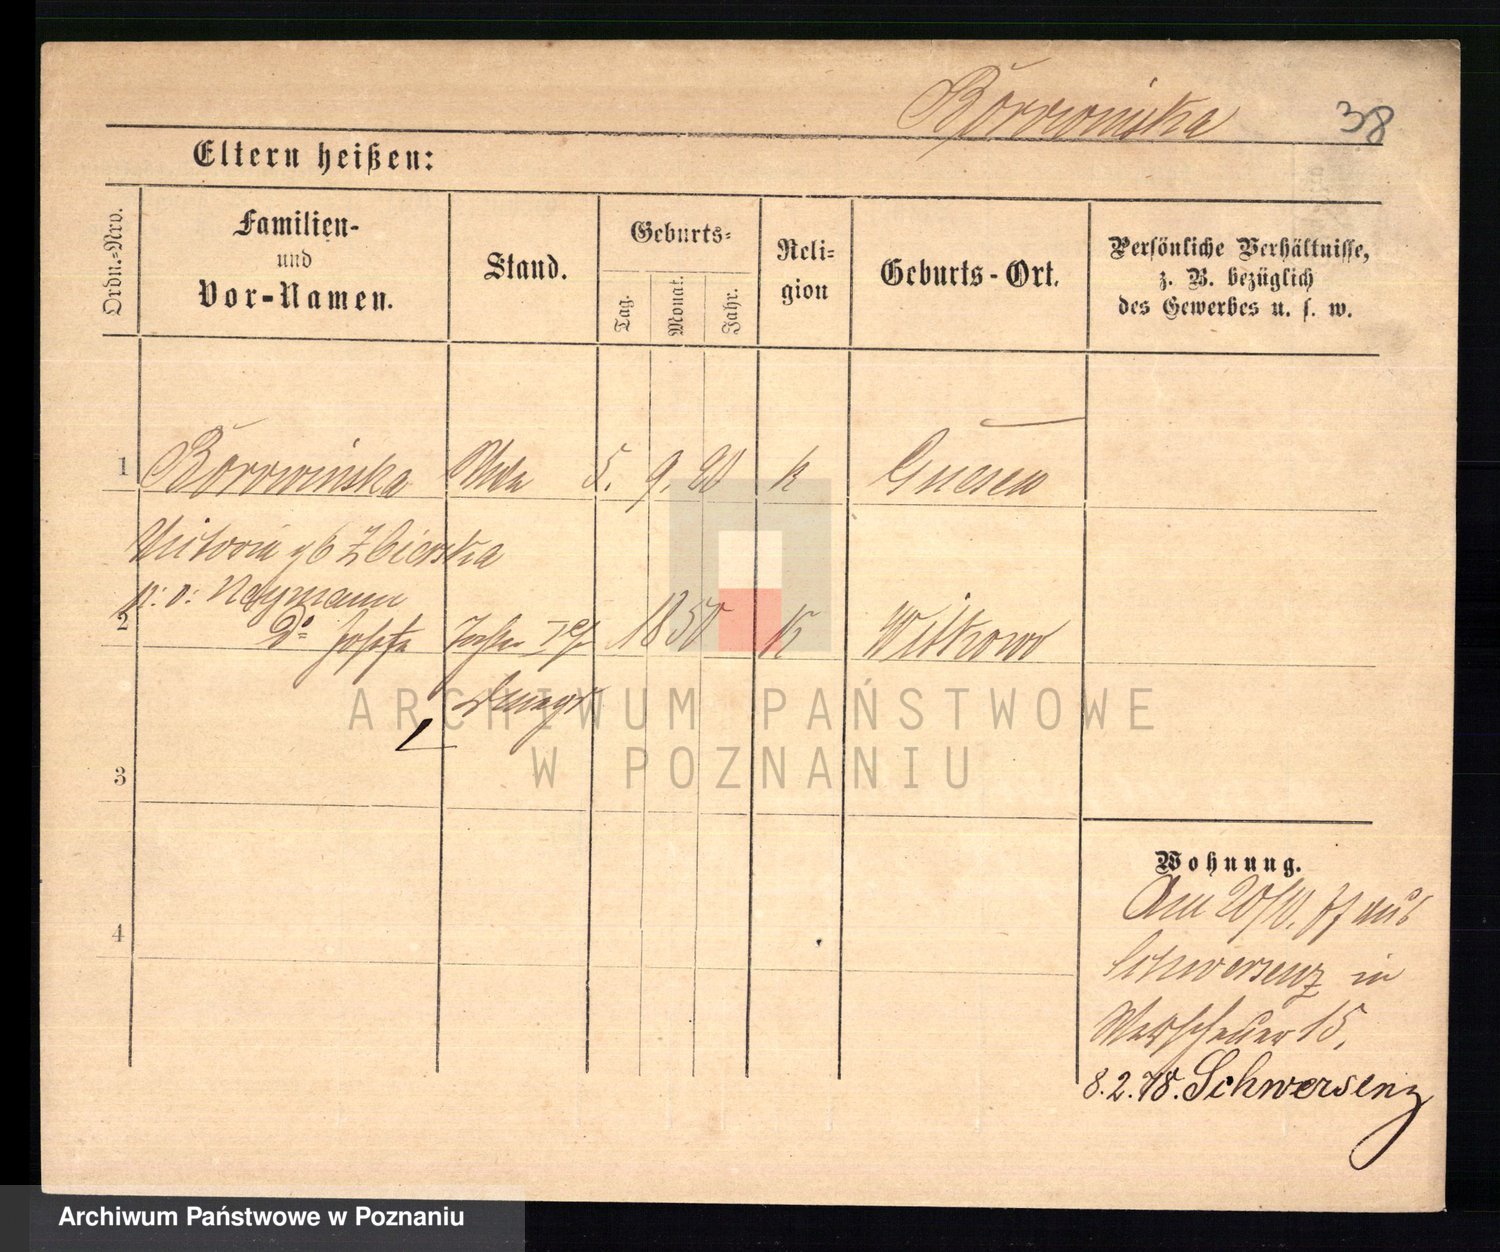 Borrowinska 38
Eltern heißen:
Ordn.-Nro.
Familien-
und
Vor-Namen.
Stand.
Geburts-
Tag.
Monat.
Jahr.
Reli-
gion
Geburts-Ort.
Persönliche Verhältnisse,
z. B. bezüglich
des Gewerbes u. s. w.
1 Borrowinska 5. 9. 20 k Gnesen
Victoria gb Zbierska
v: v: Neymann
2 Do Josefa 1850 K Witkowo
3
4
Wohnung.
Am 20/10. 77 aus
Schwersenz in
15,
8.2.78. Schwersenz
ARCHIWUM PAŃSTWOWE
W POZNANIU
Archiwum Państwowe w Poznaniu